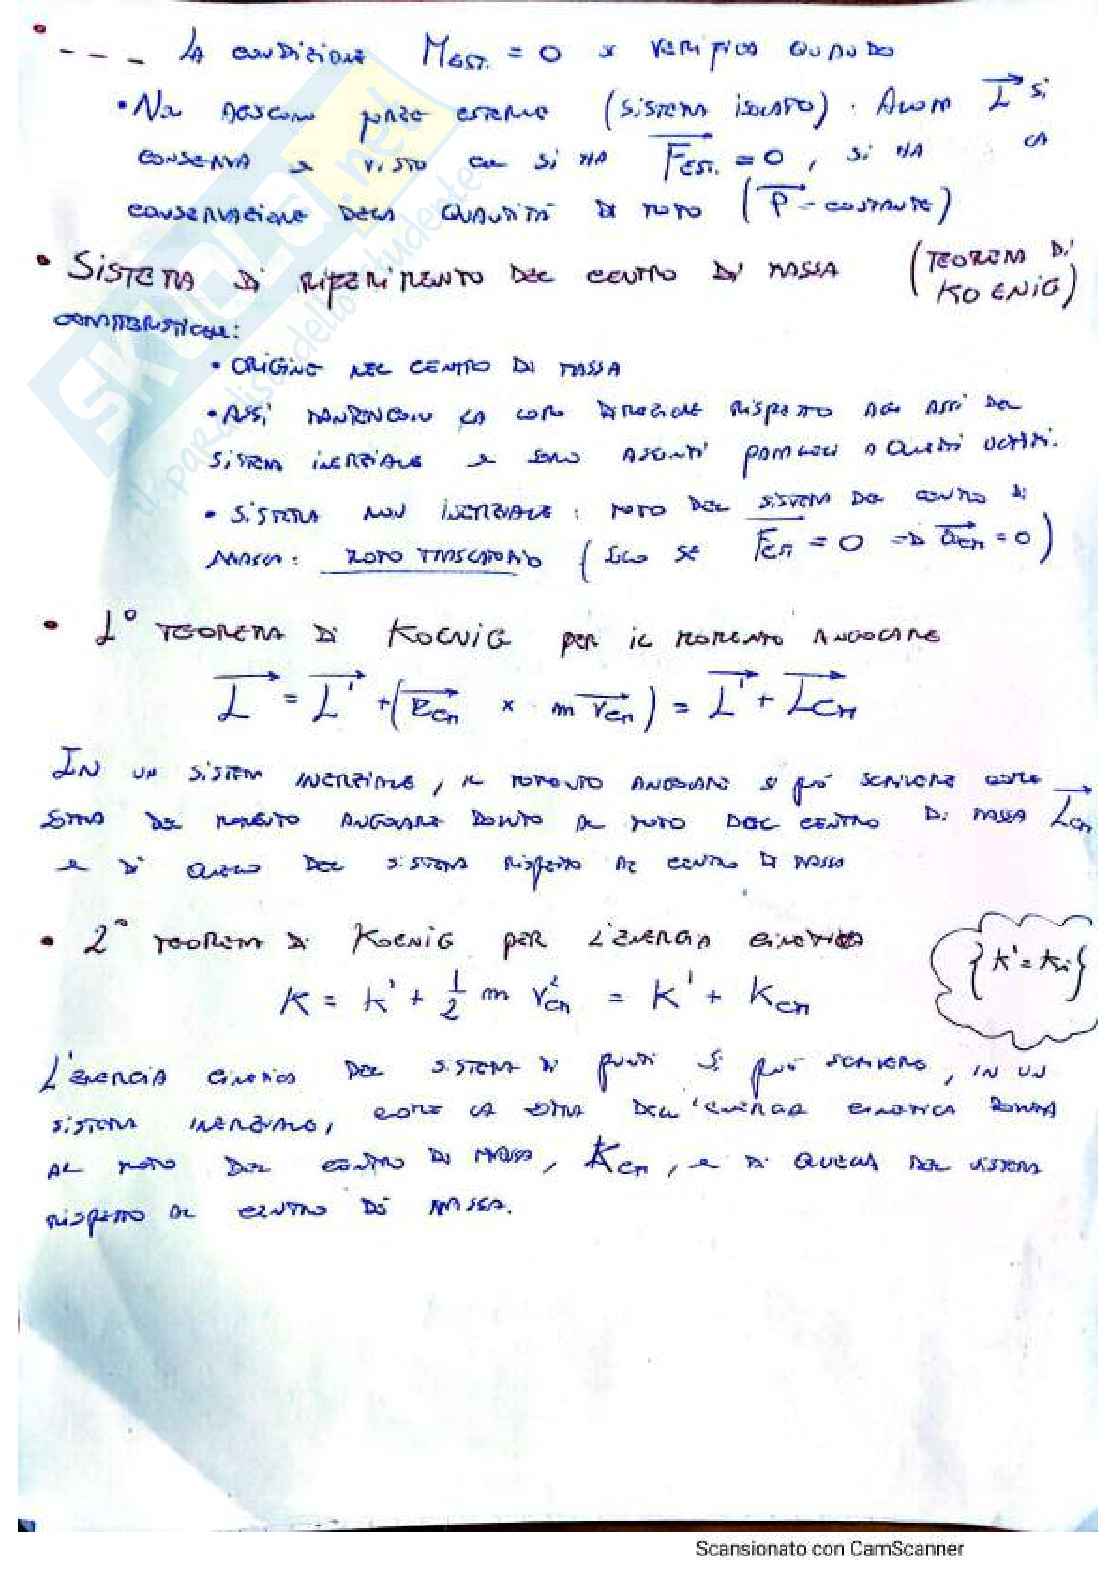 - - - La condizione Mest. = 0 si verifica quando
• Non agiscono forze esterne (sistema isolato). Allora L si
conserva e visto che si ha Fest. = 0, si ha la
conservazione della quantità di moto (P = costante)
• Sistema di riferimento del centro di massa (Teorema di
Koenig)
caratteristiche:
• origine nel centro di massa
• Assi mantengono la loro direzione rispetto agli assi del
sistema inerziale e sono assunti paralleli a questi ultimi.
• Sistema non inerziale: moto del sistema del centro di
massa: moto traslatorio (solo se Fcm = 0 => acm = 0)
• 1° Teorema di Koenig per il momento angolare
L = L' + (rcm × m vcm) = L' + Lcm
In un sistema inerziale, il momento angolare si può scrivere come
somma del momento angolare dovuto al moto del centro di massa Lcm
e di quello del sistema rispetto al centro di massa
• 2° Teorema di Koenig per l'energia cinetica
{K' = Ki}
K = K' + 1/2 m vcm² = K' + Kcm
L'energia cinetica del sistema di punti si può scrivere, in un
sistema inerziale, come la somma dell'energia cinetica dovuta
al moto del centro di massa, Kcm, e di quella del sistema
rispetto al centro di massa.
SKUOLA.net
il paradiso dello studente
Scansionato con CamScanner